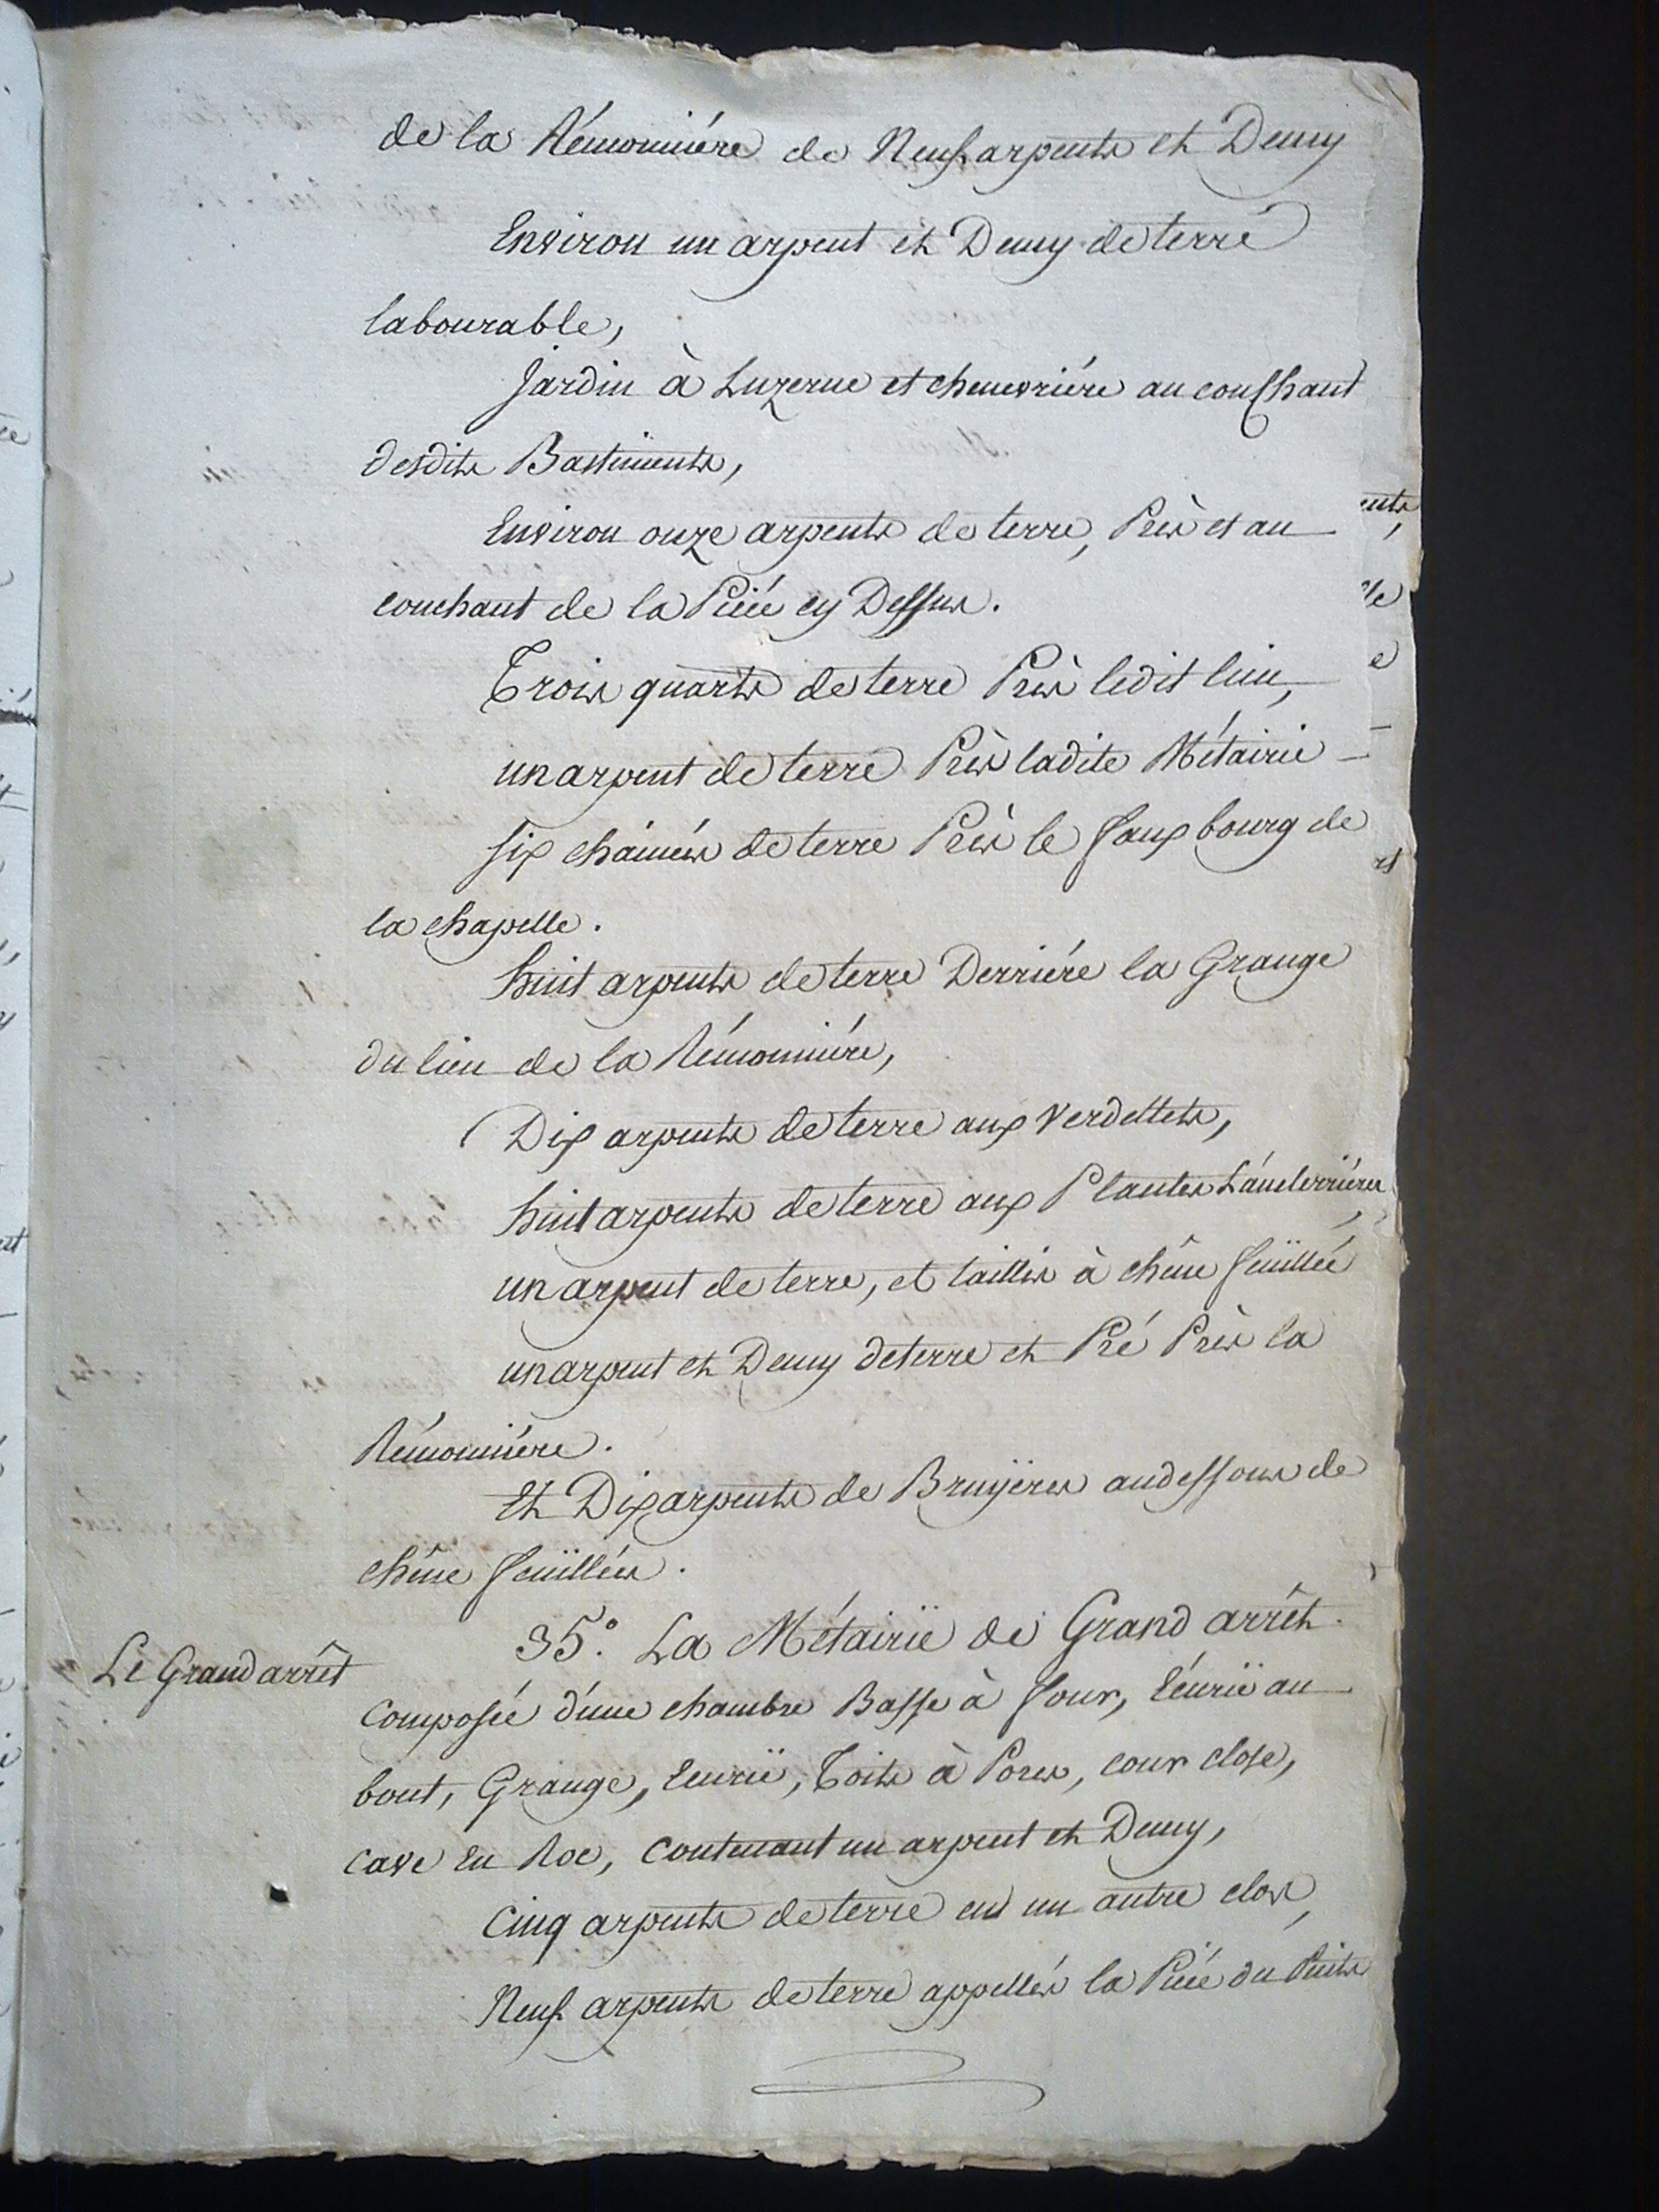 de la Rémonniére de Neuf arpents et Demy
Environ un arpent et Demy de terre
labourable,
Jardin à Luzerne et chenevriére au couchant
desdits Bastiments,
Environ onze arpents de terre, Près et au
couchant de la Piéce cy Dessus.
Trois quarts de terre Près ledit lieu,
un arpent de terre Près ladite Métairie
six chainées de terre Près le fauxbourg de
la chapelle.
huit arpents de terre Derriére la Grange
du lieu de la Rémonniére,
Dix arpents de terre aux Verdettets,
huit arpents de terre aux Plantes
un arpent de terre, et taillis à chêne feüillée
un arpent et Demy de terre et Pré Près la
Rémonniére.
Et Dix arpents de Bruÿeres audessous de
chêne feüillée.
Le Grand arrêt
35.° La Métairie de Grand arrêt.
Composée d'une chambre Basse à four, Ecurie au
bout, Grange, Ecurië, Toits à Porcs, cour close,
cave en Roc, contenant un arpent et Demy,
Cinq arpents de terre en un autre clos,
Neuf arpents de terre appellés la Piéce du Puits